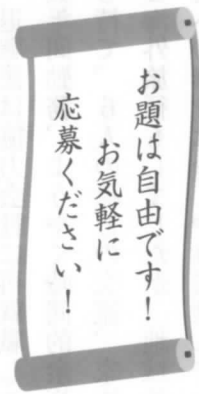 お題は自由です！
お気軽に
応募ください！